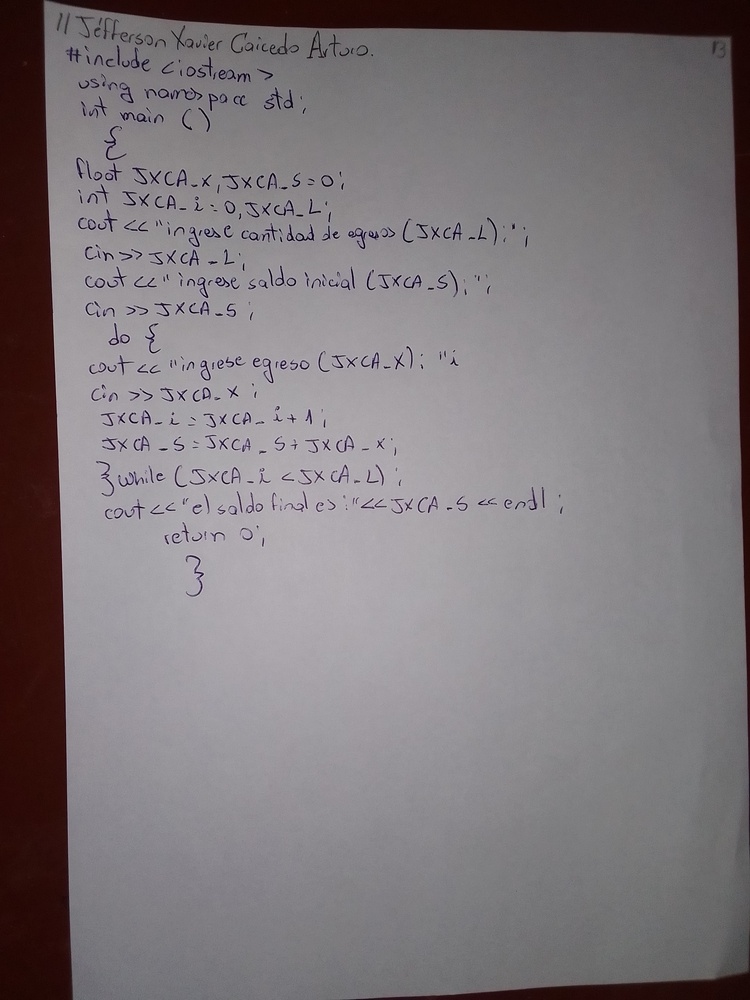 // Jéfferson Xavier Caicedo Arturo.
13
#include <iostream>
using namespace std;
int main ()
{
float JXCA_X, JXCA_S=0;
int JXCA_i=0, JXCA_L;
cout << "ingrese cantidad de egresos (JXCA_L);";
cin >> JXCA_L;
cout << "ingrese saldo inicial (JXCA_S); ";
cin >> JXCA_S;
do {
cout << "ingrese egreso (JXCA_X); ";
cin >> JXCA_X;
JXCA_i = JXCA_i+1;
JXCA_S = JXCA_S + JXCA_X;
} while (JXCA_i < JXCA_L);
cout << "el saldo final es: " << JXCA_S << endl;
return 0;
}